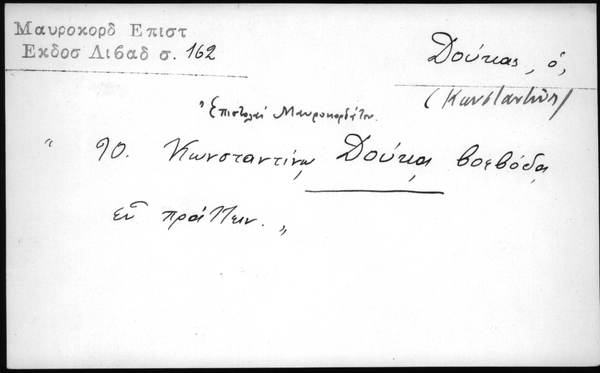 Μαυροκορδ Επιστ
Εκδοσ Λιβαδ σ. 162
Δούκας, ὁ,
(Κωνσταντῖνος)
Ἐπιστολαὶ Μαυροκορδάτου.
" 90. Κωνσταντίνῳ Δούκᾳ βοεβόδᾳ
εὖ πράττειν. "